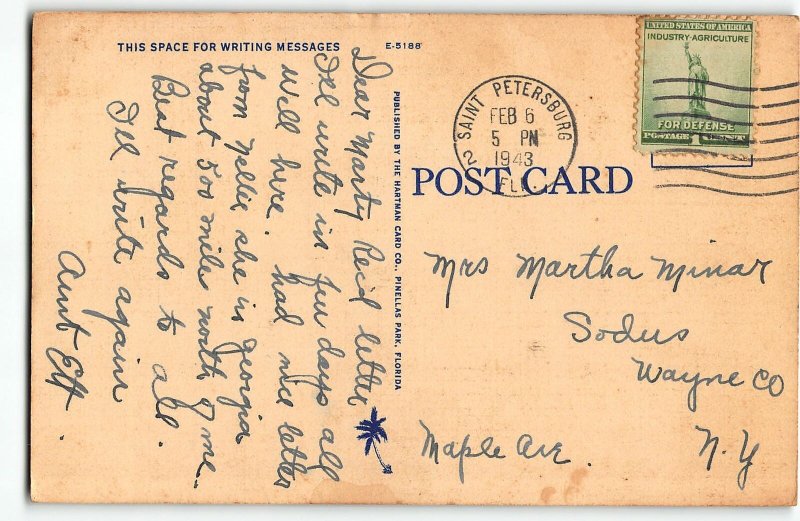 THIS SPACE FOR WRITING MESSAGES
E-5188
Dear Marty Rec'd letter
I'll write in few days all
well here. had nice letter
from Nellie she is georgia
about 500 miles north of me.
Best regards to all.
I'll write again
Aunt Eff.
PUBLISHED BY THE HARTMAN CARD CO., PINELLAS PARK, FLORIDA
SAINT PETERSBURG
FEB 6
5 PM
1943
2 FLA
UNITED STATES OF AMERICA
INDUSTRY-AGRICULTURE
FOR DEFENSE
POSTAGE 1 CENT
POST CARD
Mrs Martha Minar
Sodus
Wayne Co
Maple Ave. N.Y